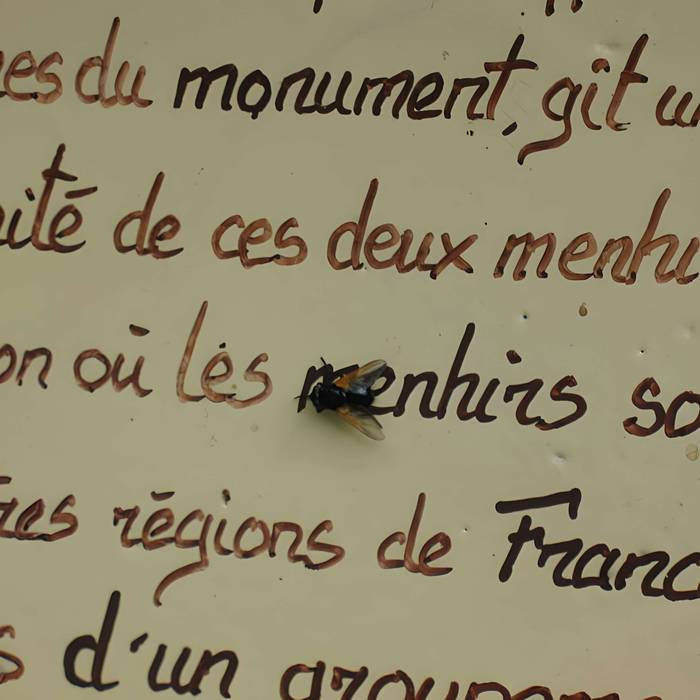 es du monument, gît u
ité de ces deux menhi
on où les menhirs so
res régions de Franc
s d'un groupeme